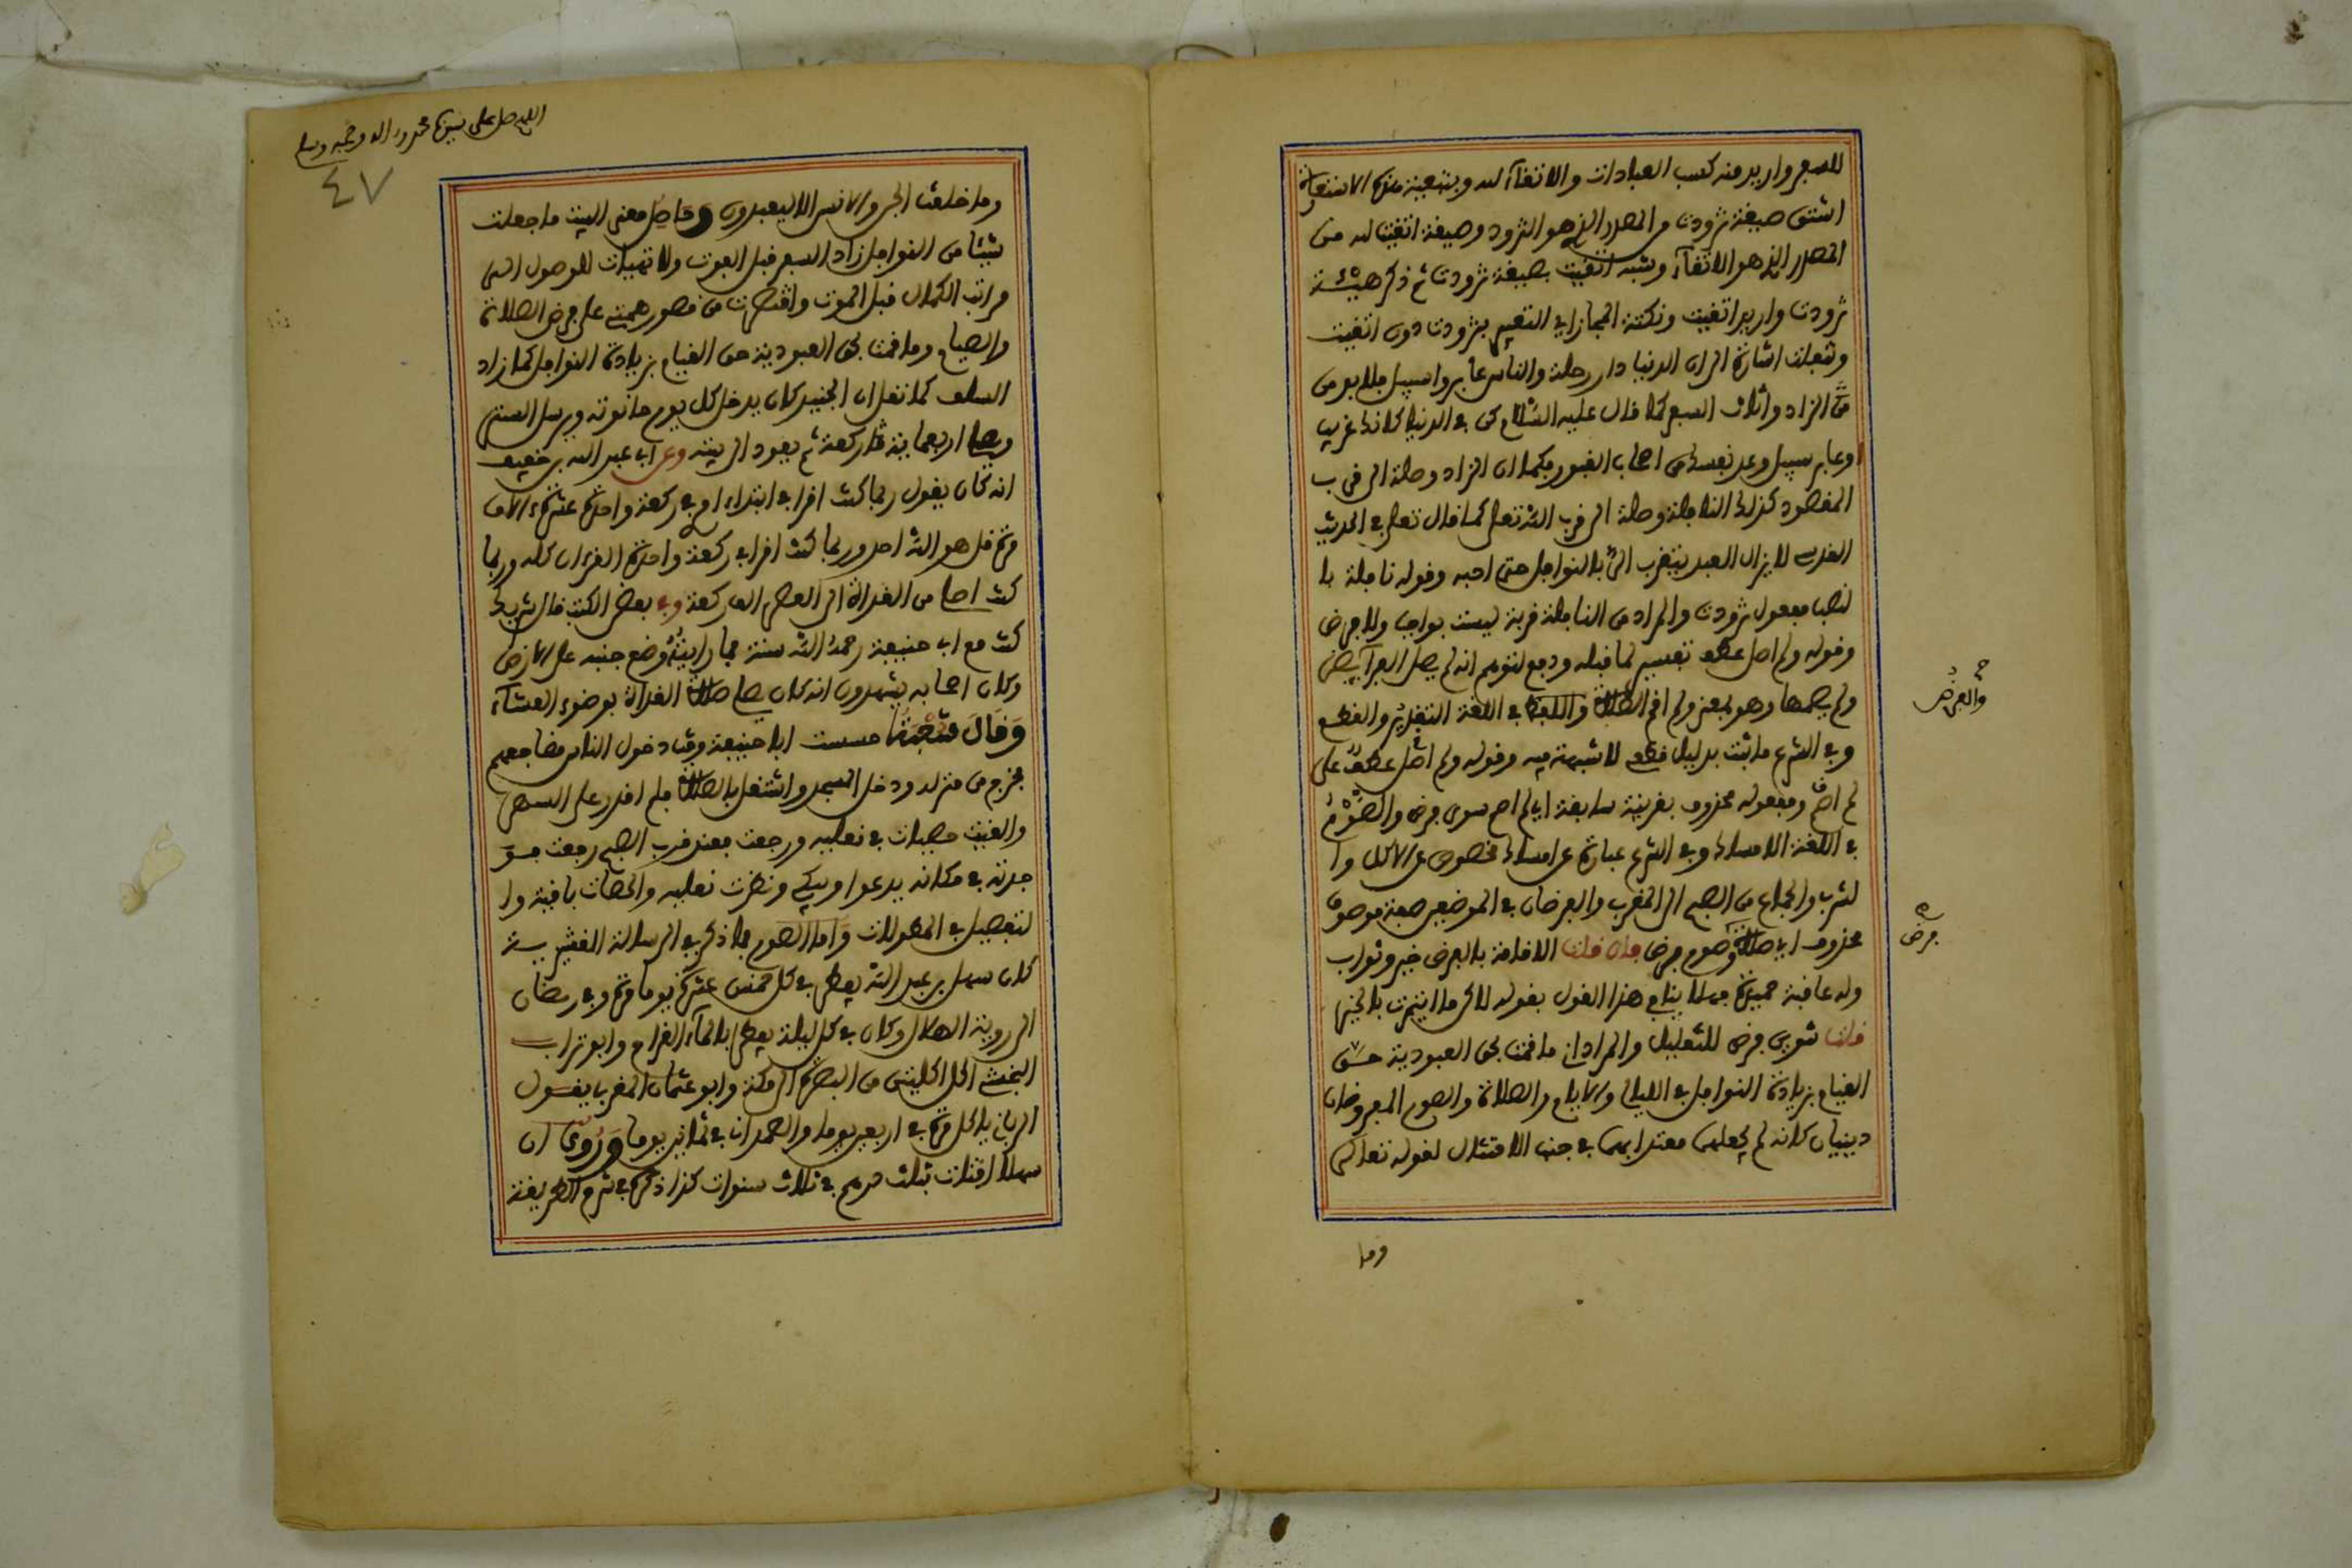 للسفر واريد منه كسب العبادات والاتقآء لله وبتبعية منه الاستعارة
اشتق صيغة تزودت من المصدر الذي هو التزود وصيغة اتقيت لله من
المصدر الذي هو الاتقآء وشبه اتقيت بصيغة تزودت ثم ذكر هيئة
تزودت واريد اتقيت ونكتة المجاز اي التعبير بتزودت دون اتقيت
وتنفلت اشارة الى ان الدنيا دار رحلة والناس عابروا سبيل فلابد من
الزاد واثاث السفر كما قال عليه السلام كن في الدنيا كانك غريب
او عابر سبيل وعد نفسك من اصحاب القبور فكما ان الزاد وصلة الى قرب
المقصود كذلك النافلة وصلة الى قرب الله تعلى كما قال تعلى في الحديث
القدسي لا يزال العبد يتقرب الي بالنوافل حتى احبه وقوله نافلة با
لنصب مفعول تزودت والمراد من النافلة قربة ليست بواجب ولا فرض
وقوله ولم اصل عطف تفسير لما قبله ودفع لتوهم انه لم يصل الفرآيض
ولم يصمها وهو بمعنى ولم اقم الصلاة واللفظ في اللغة التقدير والقطع
وفي الشرع ما ثبت بدليل قطعي لا شبهة فيه وقوله ولم اصل عطف على
لم اصم ومفعوله محذوف بقرينة سابقة اي لم اصم سوى فرض والصوم
في اللغة الامساك وفي الشرع عبارة عن امساك مخصوص عن الاكل وا
لشرب والجماع من الصبح الى المغرب والفرضان في الموضعين صفة موصوف
محذوف اي صلاة وصوم فرض فان قلت الاقامة بالفرض خير وثواب
وله عاقبة حميدة فلا ينافي هذا القول بقوله لاكن ما ايتمرت بالخير
قلت تنوين فرض للتقليل والمراد اني ما قمت بحق العبودية حق
القيام بزيادة النوافل في الليالي والايام والصلاة والصوم المفروضان
دينيان كانه لم يجعلهما معتدا بهما في جنب الامتثال لقوله تعالى
والفرض
فرض
وما
اللهم صل على سيدنا محمد واله وصحبه وسلم
٤٧
وما خلقت الجن والانس الا ليعبدون وحاصل معنى البيت ما جعلت
شيئا من النوافل زاد السفر قبل الفوت ولا تهيات للوصول الى
مراتب الكمال قبل الموت واقتصرت من قصور همتي على فرض الصلاة
والصيام وما قمت بحق العبودية حق القيام بزيادة النوافل كما زاد
السلف كما نقل ان الجنيد كان يدخل كل يوم حانوته ويرسل الستر
ويصلي اربعماية ركعة ثم يعود الى بيته وعن ابي عبد الله بن خفيف
انه كان يقول ربما كنت اقرا في ابتداء امري في ركعة واحدة عشرة الاف
مرة قل هو الله احد وربما كنت اقرا في ركعة واحدة القرءان كله وربما
كنت اصلي من الغداة الى العصر الف ركعة وفي بعض الكتب قال شريك
كنت مع ابي حنيفة رحمه الله سنة فما رايته وضع جنبه على الارض
وكان اصحابه يشهدون انه كان يصلي صلاة الغداة بوضوء العشآء
وقال حسست ابا حنيفة وقت دخول الناس مضاجعهم
فخرج من منزله ودخل المسجد واشتغل بالصلاة فلم اقدر على السهر
والقيت حصيات في نعليه ورجعت فعند قرب الصبح رجعت فو
جدته في مكانه يدعوا ويبكي ونظرت نعليه والحصات باقية وا
لتفصيل في المطولات واما الصوم فما ذكر في الرسالة القشيرية
كان سهل بن عبد الله يفطر في كل خمس عشرة يوما مرة وفي رمضان
الى روية الهلال وكان في كل ليلة يفطر بالمآء القراح وابو تراب
النخشبي اكل اكلتين من البصرة الى مكة وابو عثمان المغربي يقول
الرباني ياكل مرة في اربعين يوما والصمداني في ثمانين يوما وروي ان
سهلا اقتات بثلث درهم في ثلاث سنوات كذا ذكره في شرح الطريقة